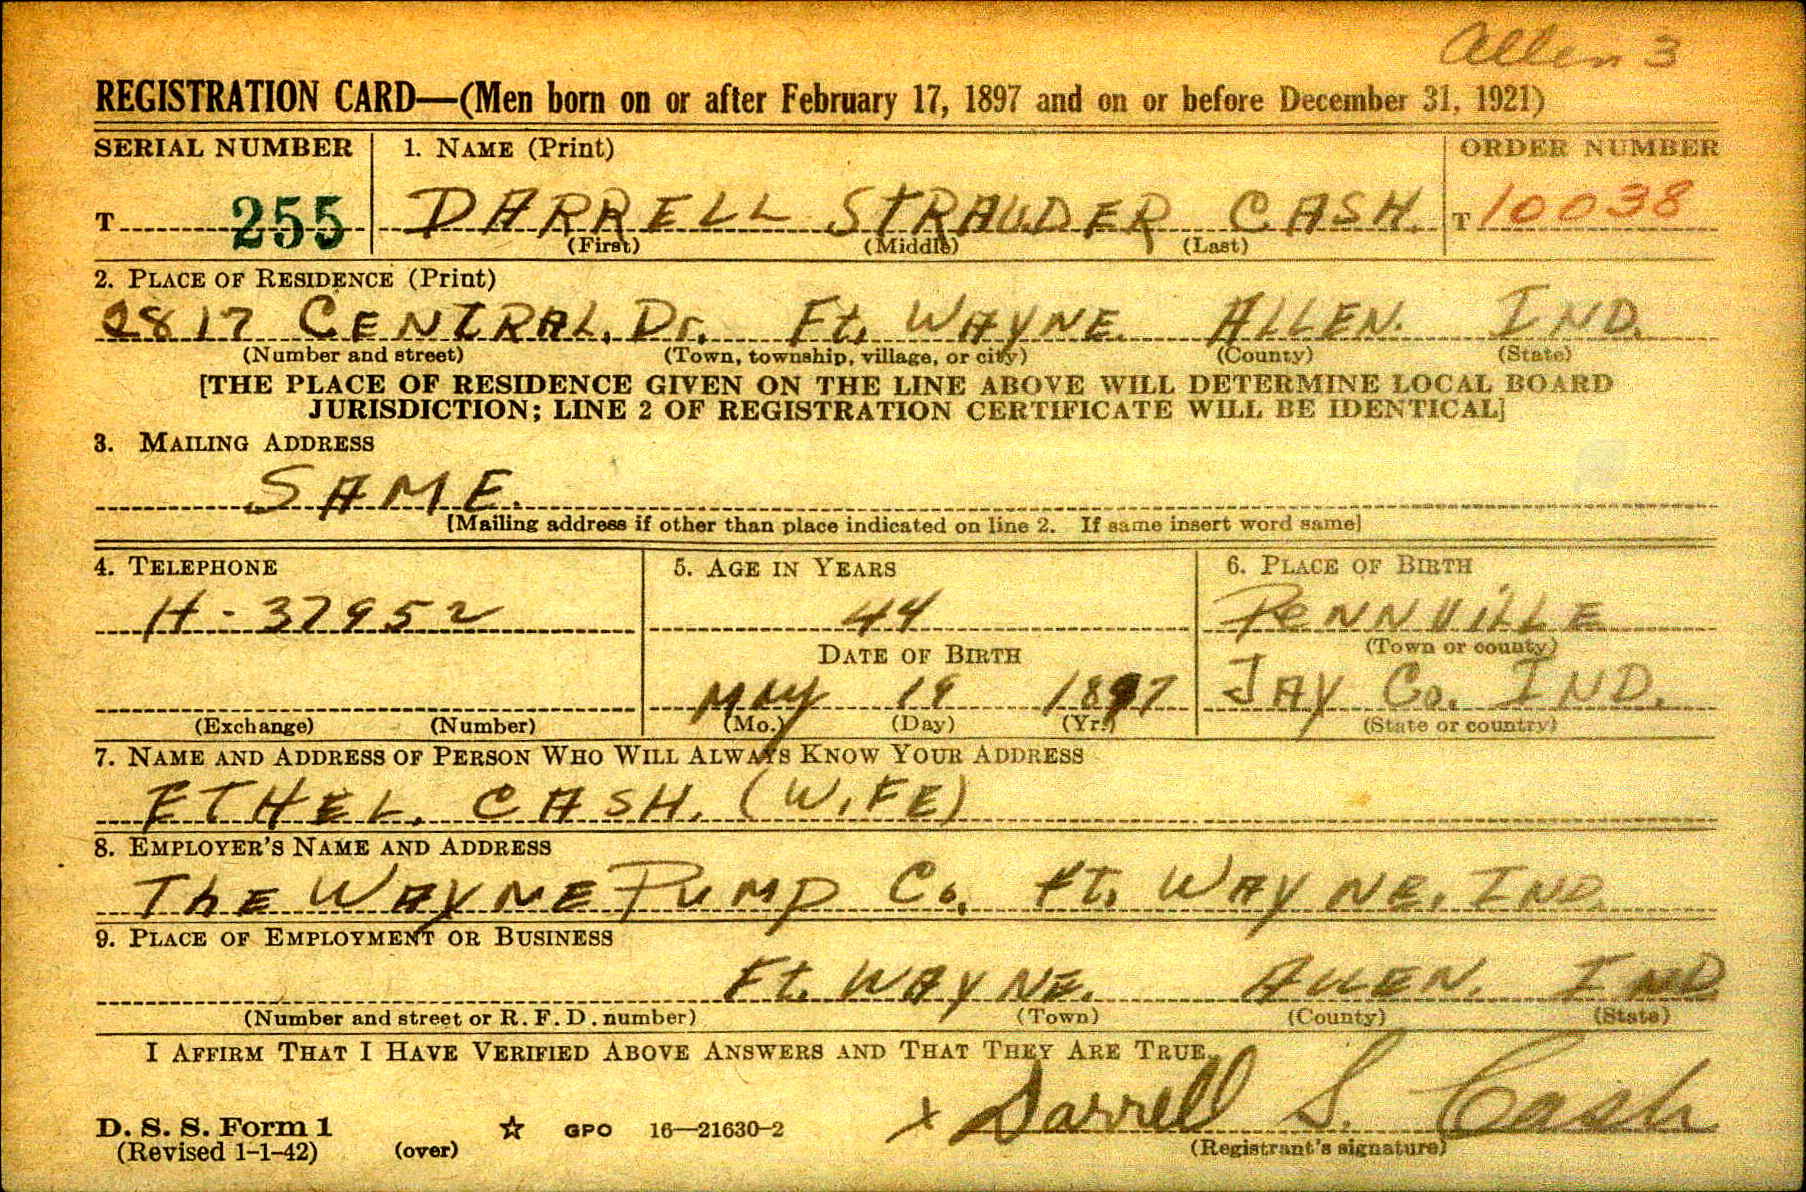 Allen 3
REGISTRATION CARD—(Men born on or after February 17, 1897 and on or before December 31, 1921)
SERIAL NUMBER 1. NAME (Print) ORDER NUMBER
T 255 DARRELL STRAUDER CASH. T 10038
(First) (Middle) (Last)
2. PLACE OF RESIDENCE (Print)
2817 CENTRAL, Dr. Ft. WAYNE. ALLEN. IND.
(Number and street) (Town, township, village, or city) (County) (State)
[THE PLACE OF RESIDENCE GIVEN ON THE LINE ABOVE WILL DETERMINE LOCAL BOARD
JURISDICTION; LINE 2 OF REGISTRATION CERTIFICATE WILL BE IDENTICAL]
3. MAILING ADDRESS
SAME.
[Mailing address if other than place indicated on line 2. If same insert word same]
4. TELEPHONE 5. AGE IN YEARS 6. PLACE OF BIRTH
H-37952 44 PENNVILLE
DATE OF BIRTH (Town or county)
MAY 19 1897 JAY Co. IND.
(Exchange) (Number) (Mo.) (Day) (Yr.) (State or country)
7. NAME AND ADDRESS OF PERSON WHO WILL ALWAYS KNOW YOUR ADDRESS
ETHEL. CASH. (WIFE)
8. EMPLOYER'S NAME AND ADDRESS
ThE WAYNE PUMP Co. Ft. WAYNE. IND.
9. PLACE OF EMPLOYMENT OR BUSINESS
Ft. WAYNE. ALLEN. IND
(Number and street or R. F. D. number) (Town) (County) (State)
I AFFIRM THAT I HAVE VERIFIED ABOVE ANSWERS AND THAT THEY ARE TRUE.
x Darrell S. Cash
D. S. S. Form 1 ☆ GPO 16—21630-2
(Revised 1-1-42) (over) (Registrant's signature)